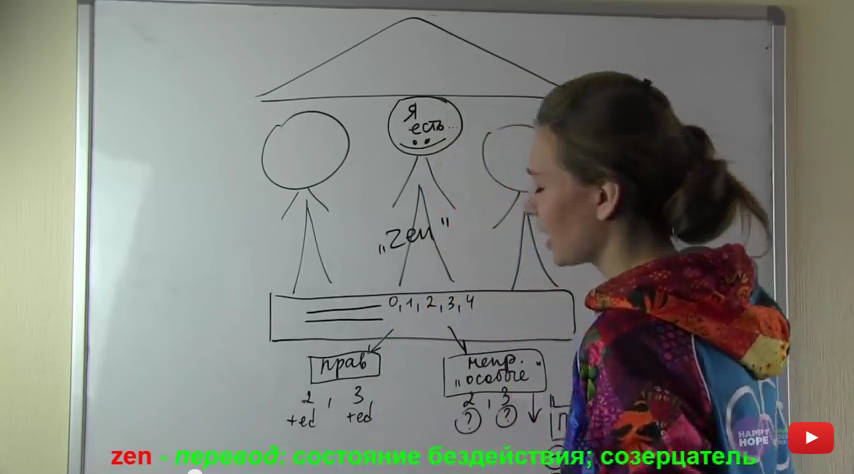 Я
есть...
"Zen"
0, 1, 2, 3, 4
прав
непр.
"особые"
2, 3
+ed +ed
2, 3
? ?
HAPPY
HOPE
zen - перевод: состояние бездействия; созерцатель